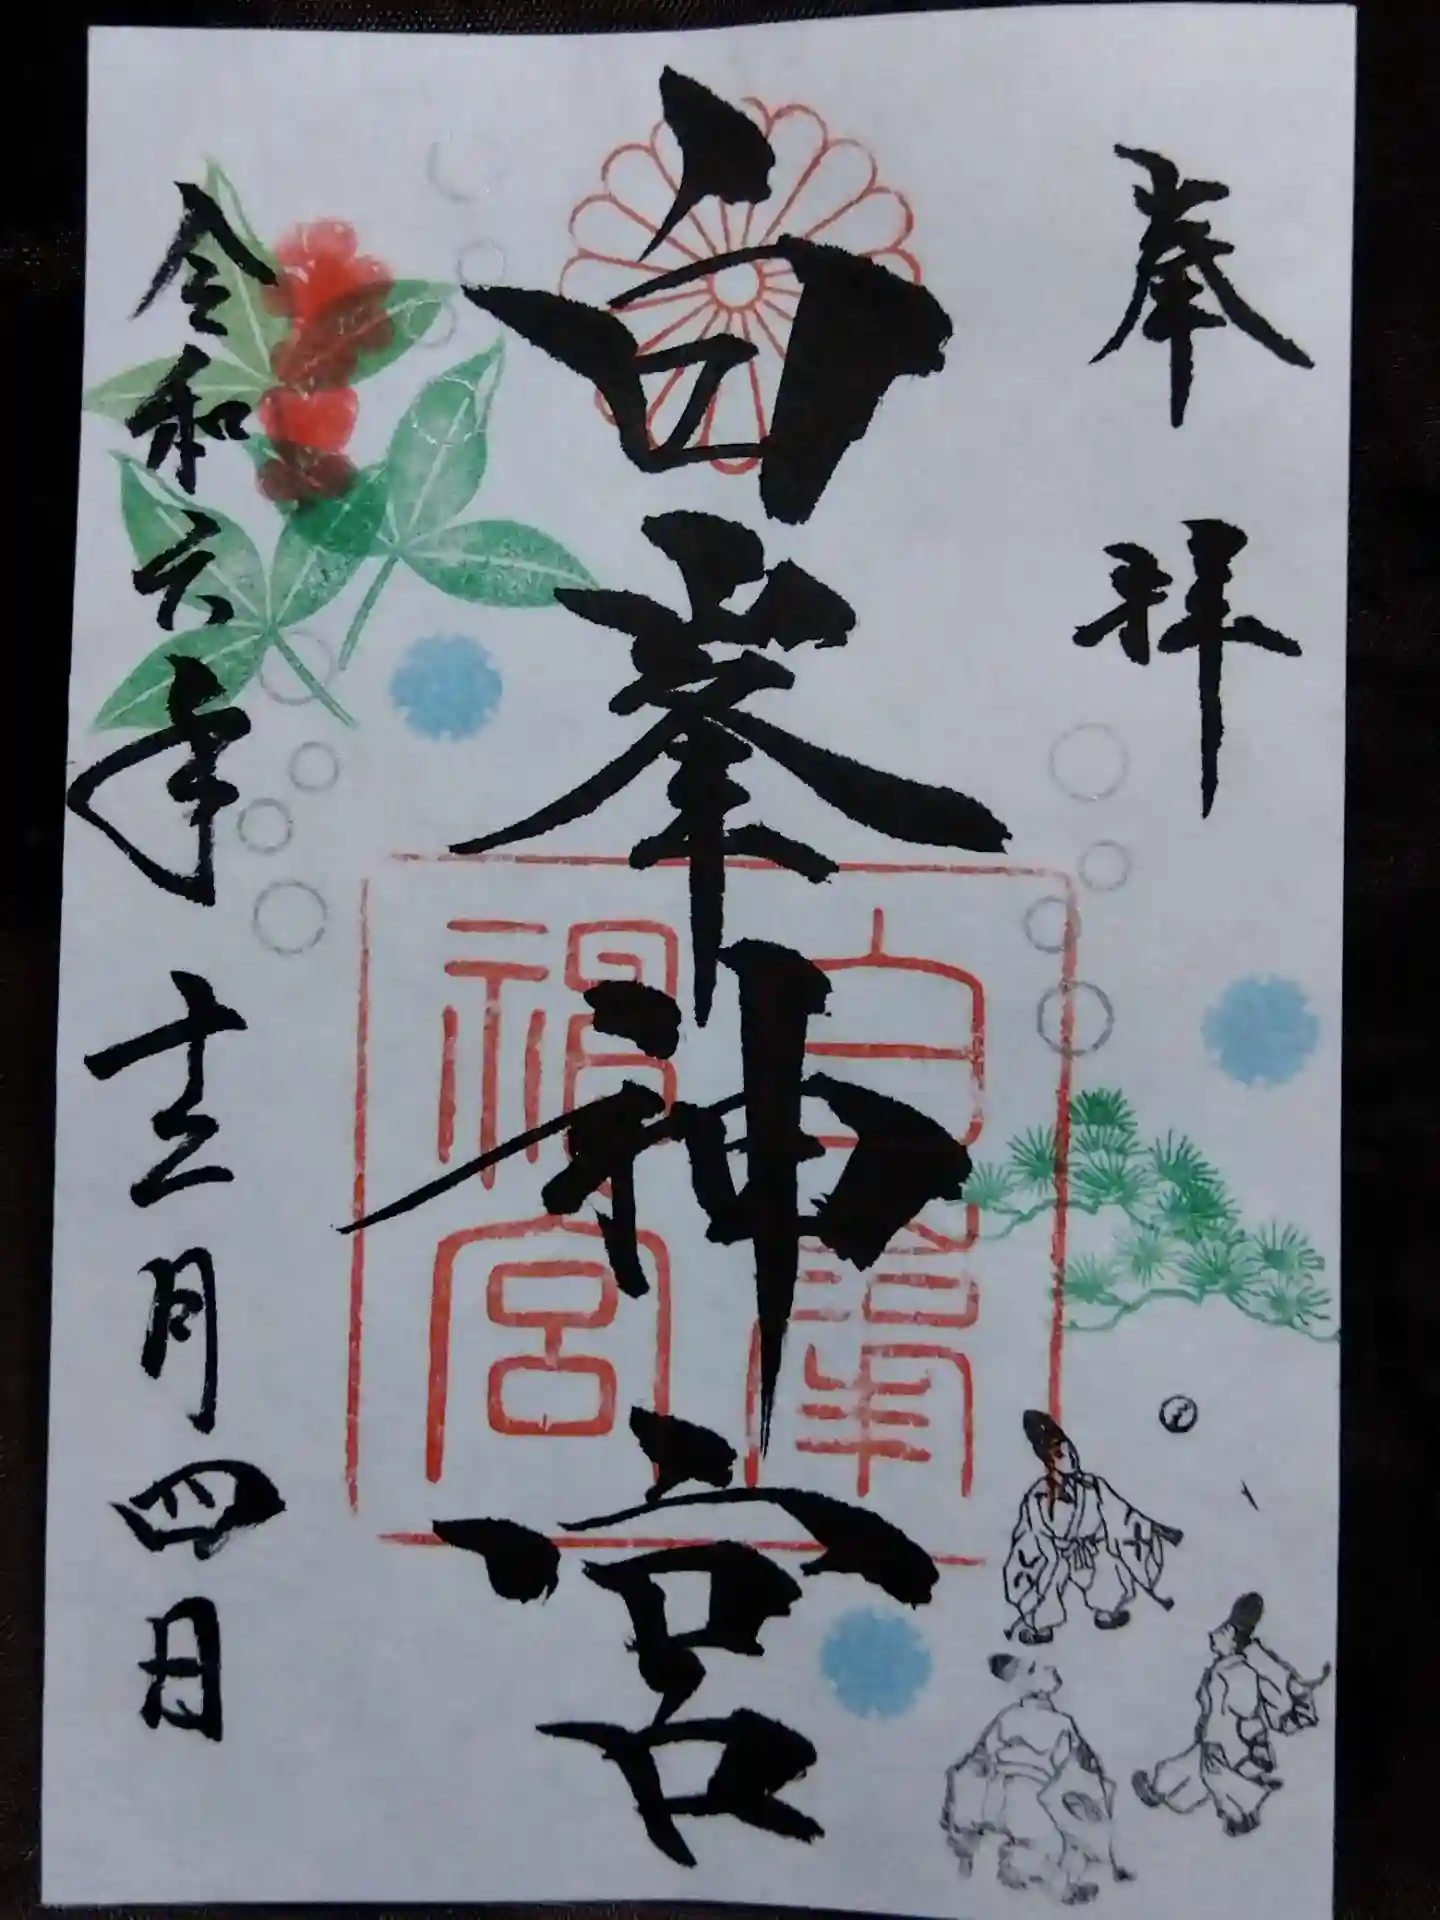 奉拝
白峯神宮
白峯
神宮
令和六年十二月四日